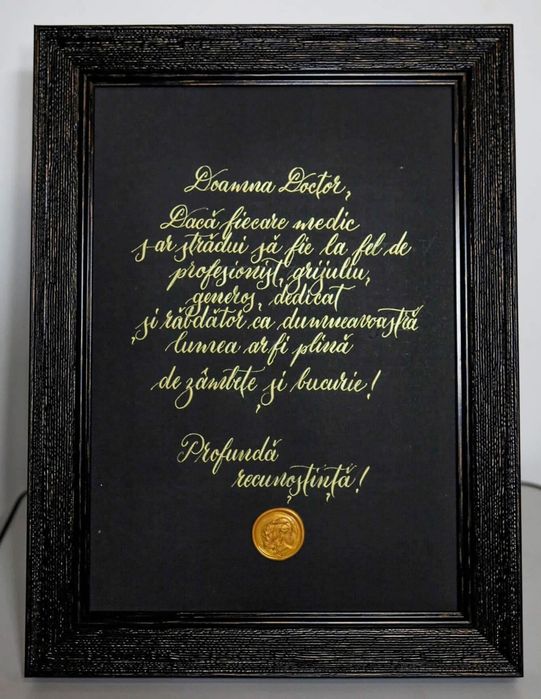 Doamna Doctor,
Dacă fiecare medic
s-ar strădui să fie la fel de
profesionist, grijuliu,
generos, dedicat
și răbdător ca dumneavoastră
lumea ar fi plină
de zâmbete și bucurie!
Profundă
recunoștință!